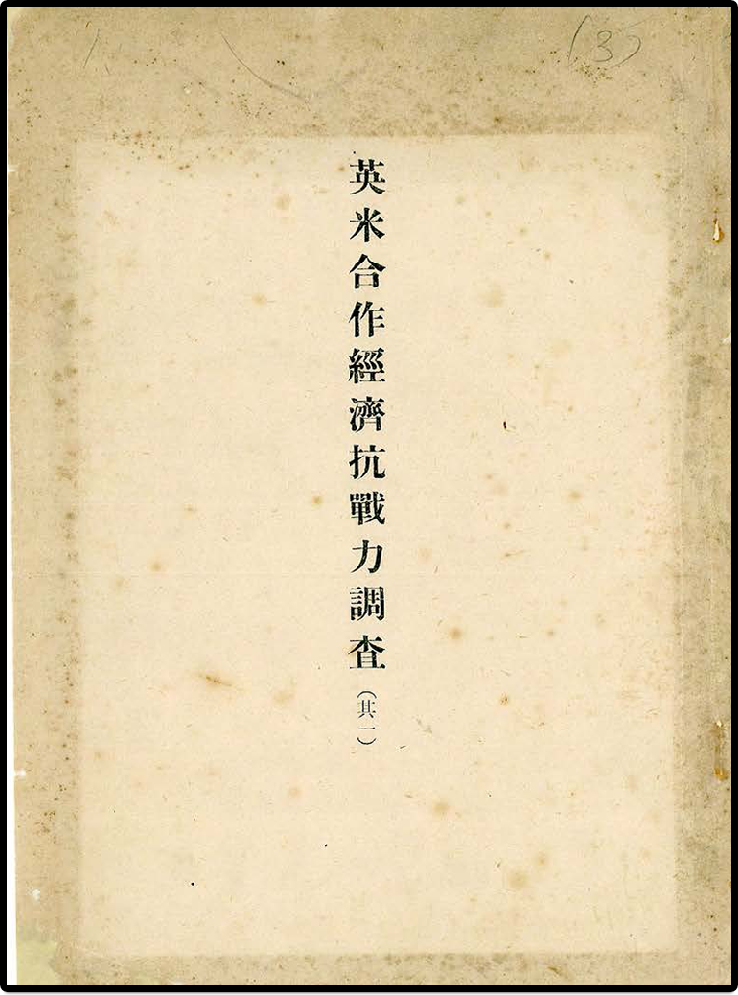 (3)
英米合作經濟抗戰力調査(其一)